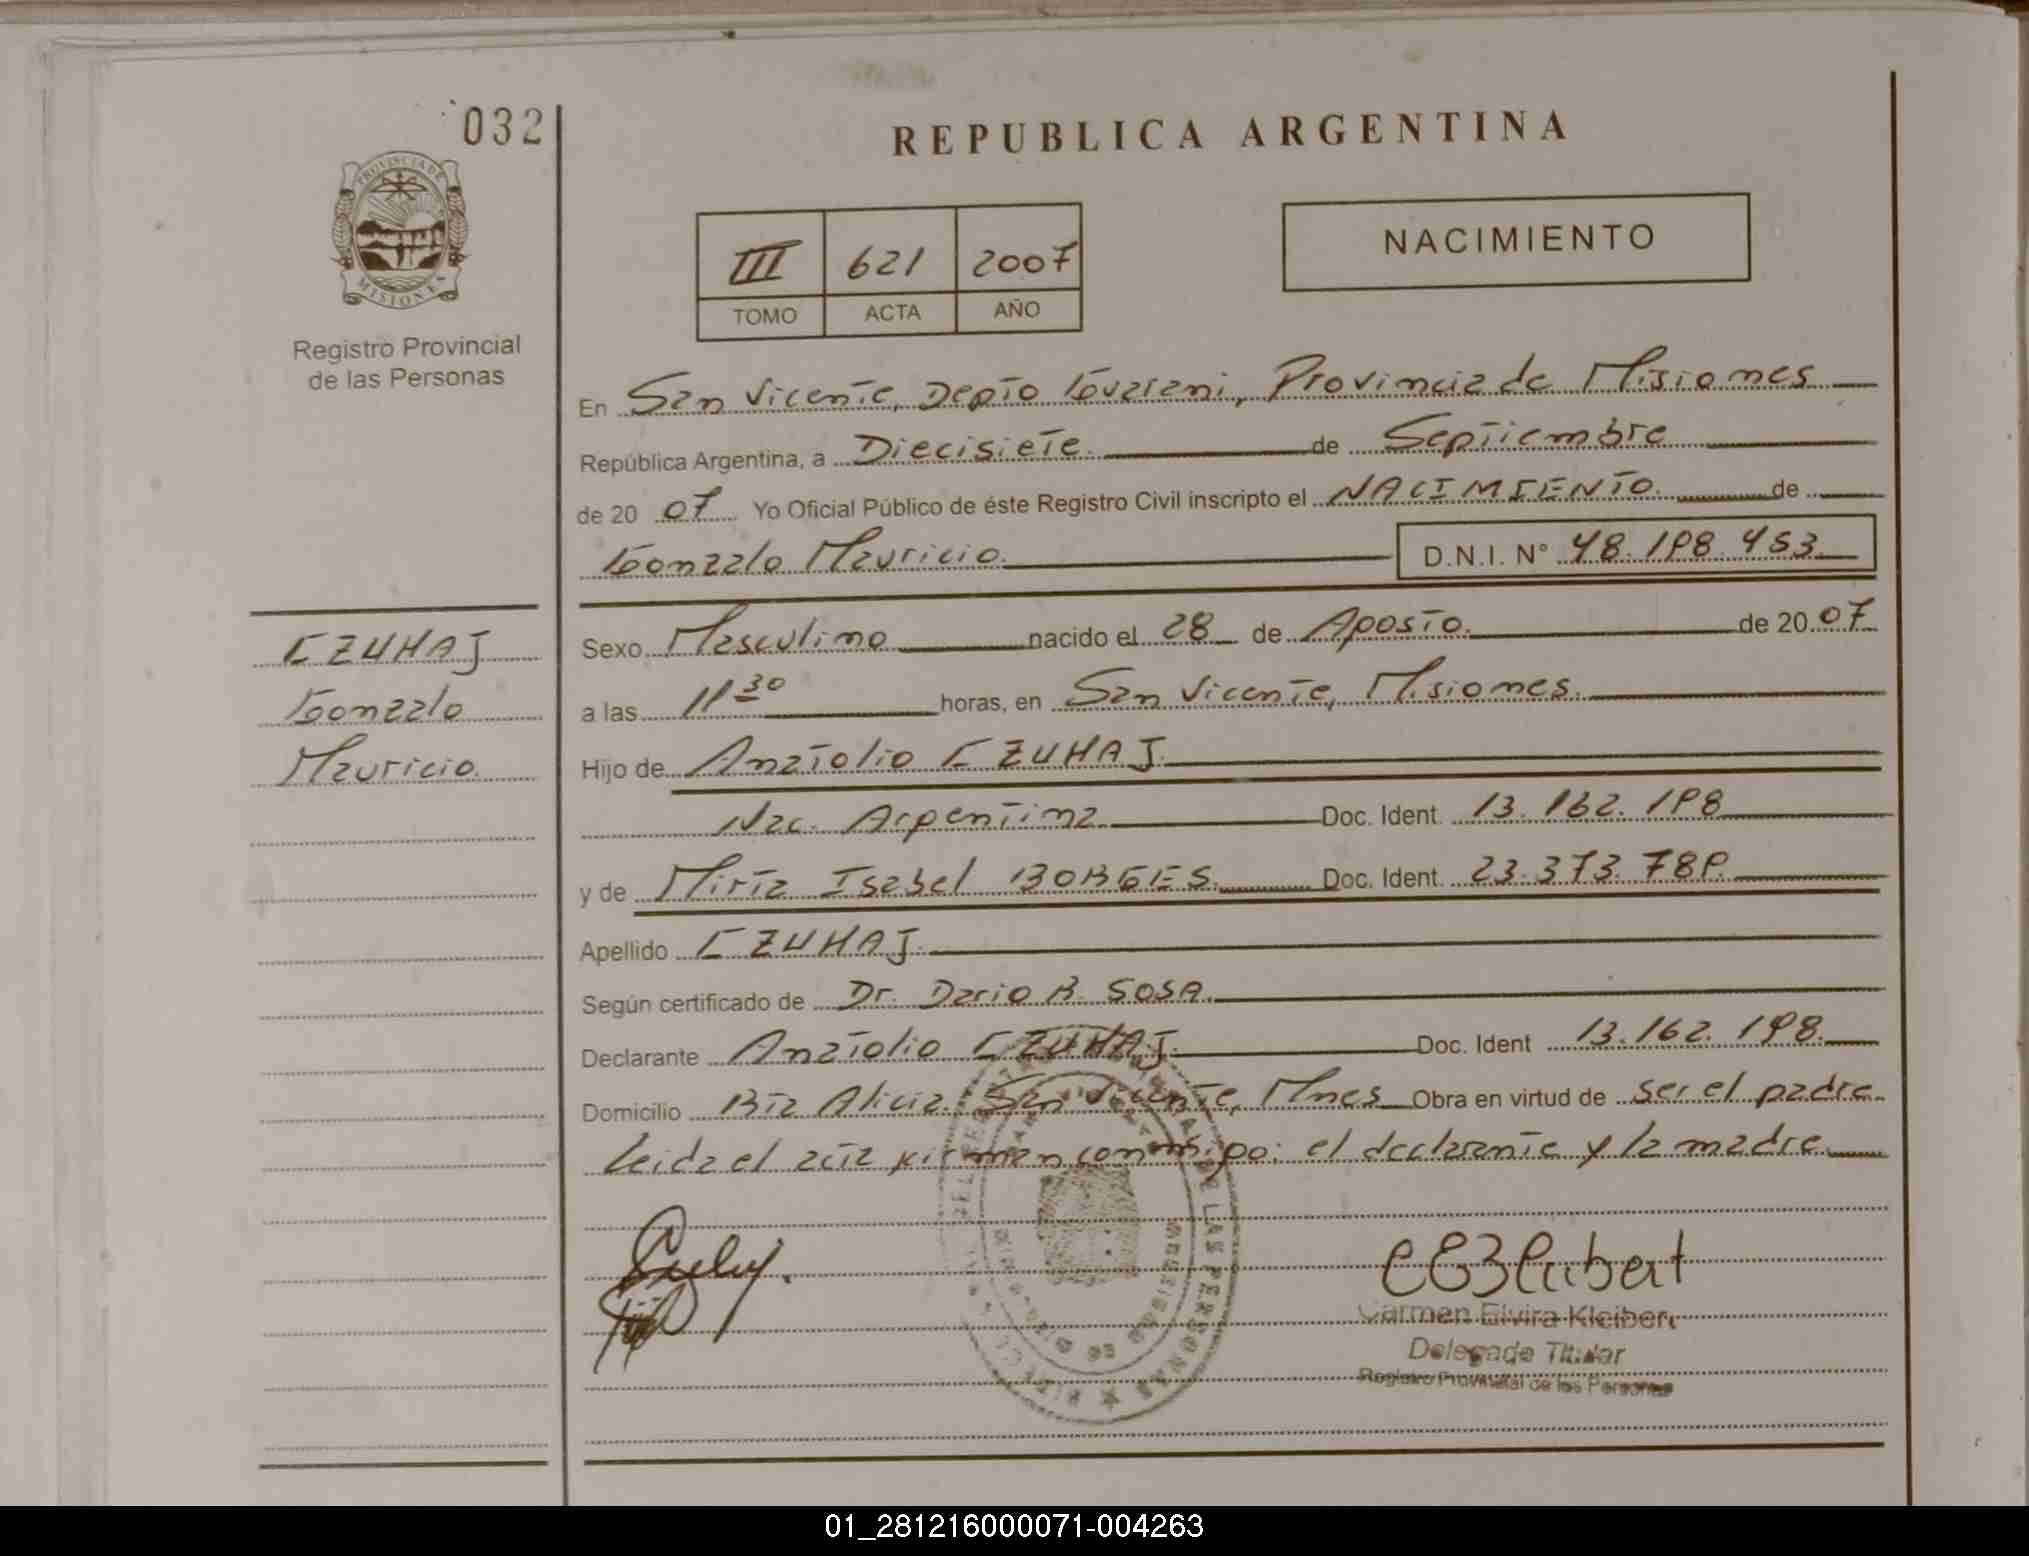 032
PROVINCIA DE
MISIONES
Registro Provincial
de las Personas
REPUBLICA ARGENTINA
III 621 2007
TOMO ACTA AÑO
NACIMIENTO
En San Vicente, Depto Guarani, Provincia de Misiones
República Argentina, a Diecisiete de Septiembre
de 20 07 Yo Oficial Público de éste Registro Civil inscripto el NACIMIENTO de
Gonzalo Mauricio. D.N.I. N° 48.198.453
CZUHAJ
Gonzalo
Mauricio.
Sexo Masculino nacido el 28 de Agosto. de 20 07
a las 11 30 horas, en San Vicente, Misiones.
Hijo de Anatolio CZUHAJ.
Nac. Argentina Doc. Ident. 13.162.198
y de Miria Isabel BORGES. Doc. Ident. 23.373.789.
Apellido CZUHAJ.
Según certificado de Dr. Dario R. SOSA.
Declarante Anatolio CZUHAJ. Doc. Ident 13.162.198.
Domicilio Bta Alicia. San Vicente, Mnes Obra en virtud de ser el padre
Leida el acta firman conmigo: el declarante y la madre
DE LAS PERSONAS
Carmen Elvira Kleibert
Delegado Titular
Registro Provincial de las Personas
01_281216000071-004263